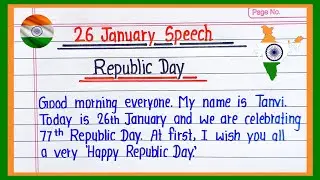 Page No.
26 January Speech
Republic Day
Good morning everyone. My name is Tanvi.
Today is 26th January and we are celebrating
77th Republic Day. At first, I wish you all
a very 'Happy Republic Day.'